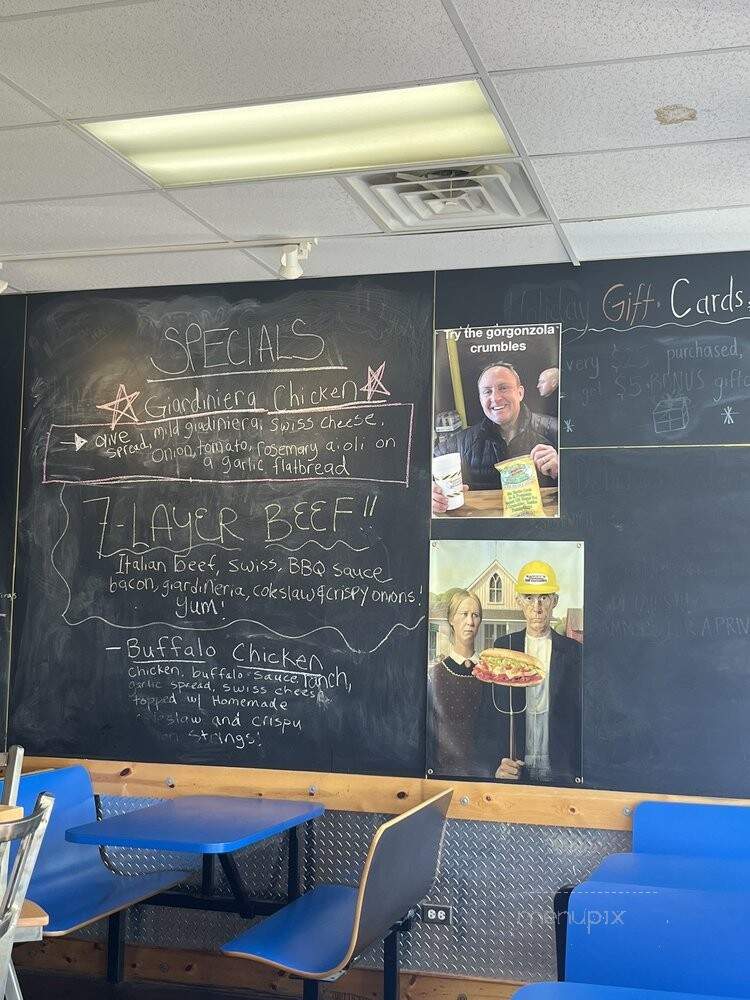 SPECIALS
Giardiniera Chicken
olive spread, mild giadiniera, swiss cheese,
onion, tomato, rosemary aioli on
a garlic flatbread
7-LAYER BEEF!!
Italian beef, swiss, BBQ sauce
bacon, giardineria, coleslaw & crispy onions!
YUM!
- Buffalo Chicken
chicken, buffalo sauce, ranch,
garlic spread, swiss cheese
topped w/ Homemade
coleslaw and crispy
strings!
Try the gorgonzola
crumbles
Gift Cards
purchased,
$5 BONUS gift
66
menupix